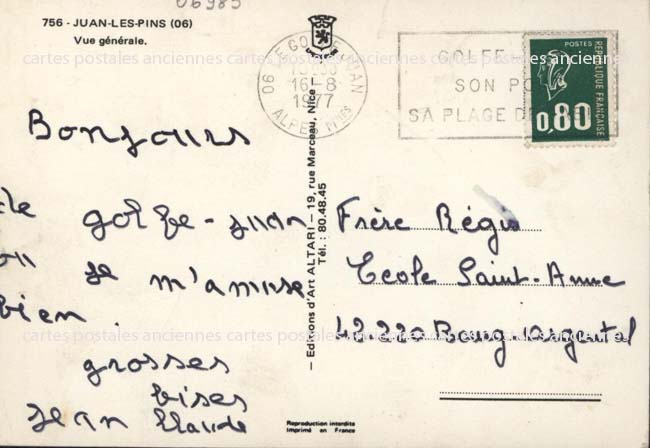 06985
756 - JUAN-LES-PINS (06)
Vue générale.
cartes postales anciennes cartes postales anciennes cartes postales anciennes cartes postales anciennes
06 LE GOLFE JUAN
16-8
1977
ALPES MMES
GOLFE
SON PO
SA PLAGE D
POSTES
REPUBLIQUE FRANÇAISE
0,80
Bonjours
de golfe-juan
ou je m'amuse
bien.
grosses
bises
jean Claude
— Editions d'Art ALTARI — 19, rue Marceau, Nice
Tél. : 80.48.45
Frère Régis
Ecole Saint-Anne
42220 Bourg-Argental
cartes postales anciennes cartes postales anciennes cartes postales anciennes cartes postales anciennes
Reproduction interdite
Imprimé en France